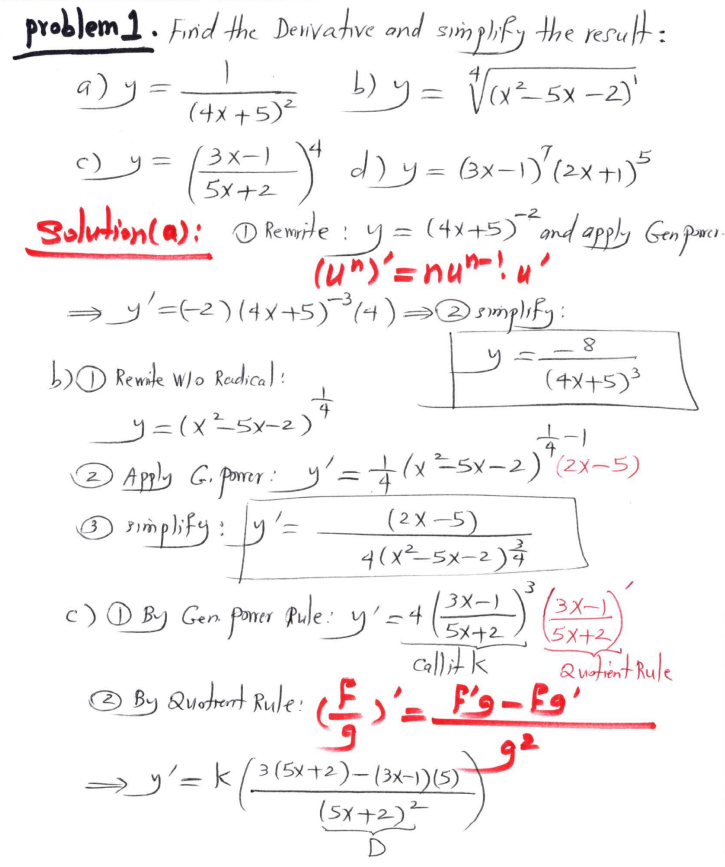 problem 1. Find the Derivative and simplify the result:
a) y = 1/(4x+5)² b) y = ∜(x²-5x-2)
c) y = ((3x-1)/(5x+2))⁴ d) y = (3x-1)⁷(2x+1)⁵
Solution(a): ① Rewrite: y = (4x+5)⁻² and apply Gen power.
(uⁿ)' = nuⁿ⁻¹. u'
⇒ y' = (-2)(4x+5)⁻³(4) ⇒ ② simplify:
y = -8/(4x+5)³
b) ① Rewrite w/o Radical:
y = (x²-5x-2)^(1/4)
② Apply G. power: y' = 1/4 (x²-5x-2)^(1/4 -1) (2x-5)
③ simplify: y' = (2x-5)/(4(x²-5x-2)^(3/4))
c) ① By Gen. power Rule: y' = 4((3x-1)/(5x+2))³ ((3x-1)/(5x+2))'
call it k Quotient Rule
② By Quotient Rule: (F/g)' = (F'g - Fg')/g²
⇒ y' = k((3(5x+2) - (3x-1)(5))/(5x+2)²)
D